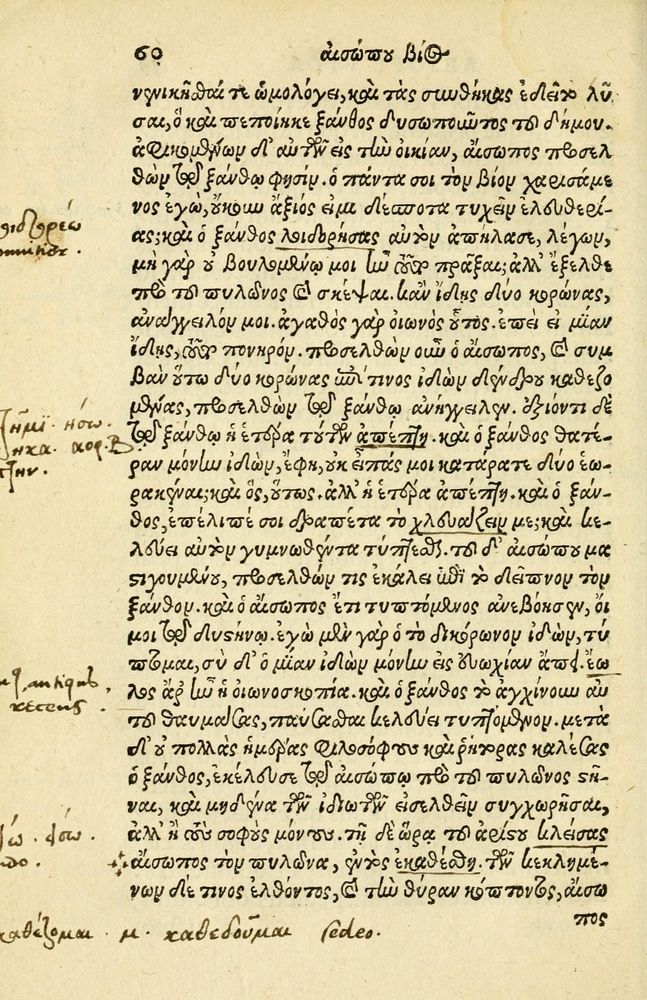 60 αἰσώπου βίος
νενικῆσθαί τε ὡμολόγει, καὶ τὰς συνθήκας ἐδεῖτο λῦ
σαι, ὃ καὶ πεποίηκε ξάνθος δυσωποῦντος τοῦ δήμου.
ἀφικομένων δ' αὐτῶν εἰς τὴν οἰκίαν, αἴσωπος προσελ
θὼν τῷ ξάνθῳ φησίν. ὁ πάντα σοι τὸν βίον χαρισάμε
νος ἐγὼ, οὔκουν ἄξιός εἰμι δέσποτα τυχεῖν ἐλευθερί
ας; καὶ ὁ ξάνθος λοιδορήσας αὐτὸν ἀπήλασε, λέγων,
μὴ γὰρ οὐ βουλομένῳ μοι ἦν τοῦτο πρᾶξαι; ἀλλ' ἔξελθε
πρὸ τοῦ πυλῶνος καὶ σκέψαι. κἂν ἴδῃς δύο κορώνας,
ἀνάγγειλόν μοι. ἀγαθὸς γὰρ οἰωνὸς οὗτος. ἐπεὶ εἰ μίαν
ἴδῃς, τοῦτο πονηρόν. προσελθὼν οὖν ὁ αἴσωπος, καὶ συμ
βὰν οὕτω δύο κορώνας ἐπί τινος ἰδὼν δένδρου καθεζο
μένας, προσελθὼν τῷ ξάνθῳ ἀνήγγειλεν. ἐξιόντι δὲ
τῷ ξάνθῳ ἡ ἑτέρα τούτων ἀπέπτη. καὶ ὁ ξάνθος θατέ
ραν μόνην ἰδὼν, ἔφη, οὐκ εἶπάς μοι κατάρατε δύο ἑω
ρακέναι; καὶ ὃς, οὕτως. ἀλλ' ἡ ἑτέρα ἀπέπτη. καὶ ὁ ξάν
θος, ἐπέλιπέ σοι δραπέτα τὸ χλευάζειν με; καὶ κε
λεύει αὐτὸν γυμνωθέντα τύπτεσθαι. τοῦ δ' αἰσώπου μα
στιγουμένου, προσελθών τις ἐκάλει ἐπὶ τὸ δεῖπνον τὸν
ξάνθον. καὶ ὁ αἴσωπος ἔτι τυπτόμενος ἀνεβόησεν, οἴ
μοι τῷ δυστήνῳ. ἐγὼ μὲν γὰρ ὁ τὸ δικόρωνον ἰδὼν, τύ
πτομαι, σὺ δ' ὁ μίαν ἰδὼν μόνην εἰς εὐωχίαν ἄπει. ἕω
λος ἄρ' ἦν ἡ οἰωνοσκοπία. καὶ ὁ ξάνθος τὸ ἀγχίνουν αὐ
τοῦ θαυμάσας, παύσασθαι κελεύει τυπτόμενον. μετὰ
δ' οὐ πολλὰς ἡμέρας φιλοσόφους καὶ ῥήτορας καλέσας
ὁ ξάνθος, ἐκέλευσε τῷ αἰσώπῳ πρὸ τοῦ πυλῶνος στῆ
ναι, καὶ μηδένα τῶν ἰδιωτῶν εἰσελθεῖν συγχωρῆσαι,
ἀλλ' ἢ τοὺς σοφοὺς μόνους. τῇ δὲ ὥρᾳ τοῦ ἀρίστου κλείσας
αἴσωπος τὸν πυλῶνα, ἐντὸς ἐκαθέσθη. τῶν κεκλημέ
νων δέ τινος ἐλθόντος, καὶ τὴν θύραν κόπτοντος, αἴσω
πος
καθέζομαι · μ. καθεδοῦμαι sedeo.